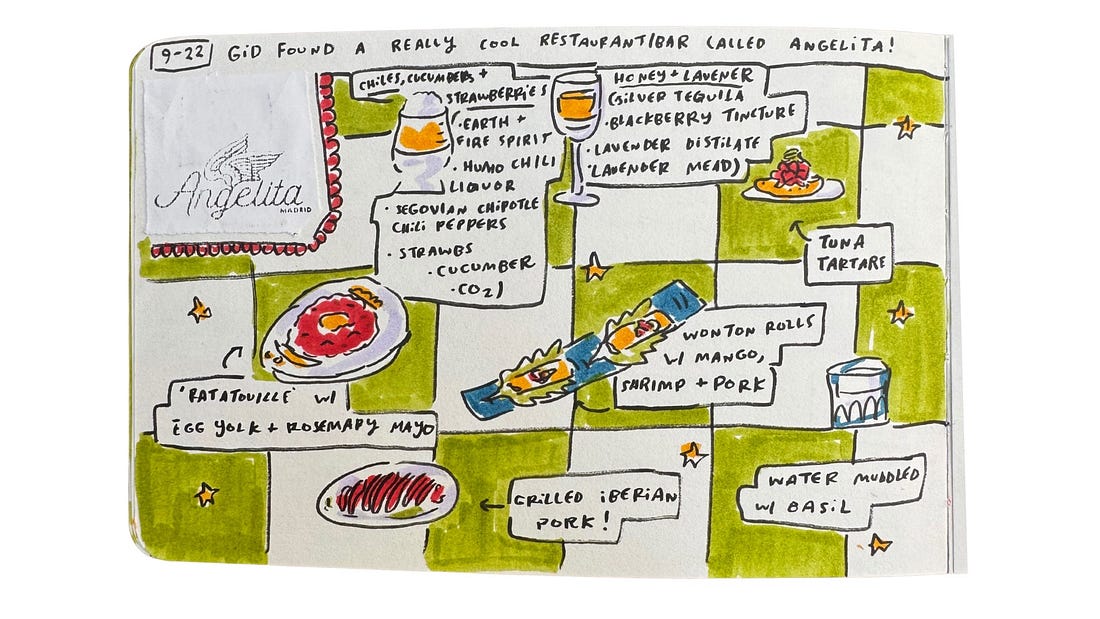 9-22 GID FOUND A REALLY COOL RESTAURANT/BAR CALLED ANGELITA!
Angelita
MADRID
CHILES, CUCUMBERS +
STRAWBERRIES
(·EARTH +
FIRE SPIRIT
·HUMO CHILI
LIQUOR
·SEGOVIAN CHIPOTLE
CHILI PEPPERS
·STRAWBS
·CUCUMBER
·CO2)
HONEY + LAVENER
(SILVER TEQUILA
·BLACKBERRY TINCTURE
·LAVENDER DISTILATE
·LAVENDER MEAD)
TUNA
TARTARE
"RATATOUILLE" W/
EGG YOLK + ROSEMARY MAYO
WONTON ROLLS
W/ MANGO,
SHRIMP + PORK
GRILLED IBERIAN
PORK!
WATER MUDDLED
W/ BASIL